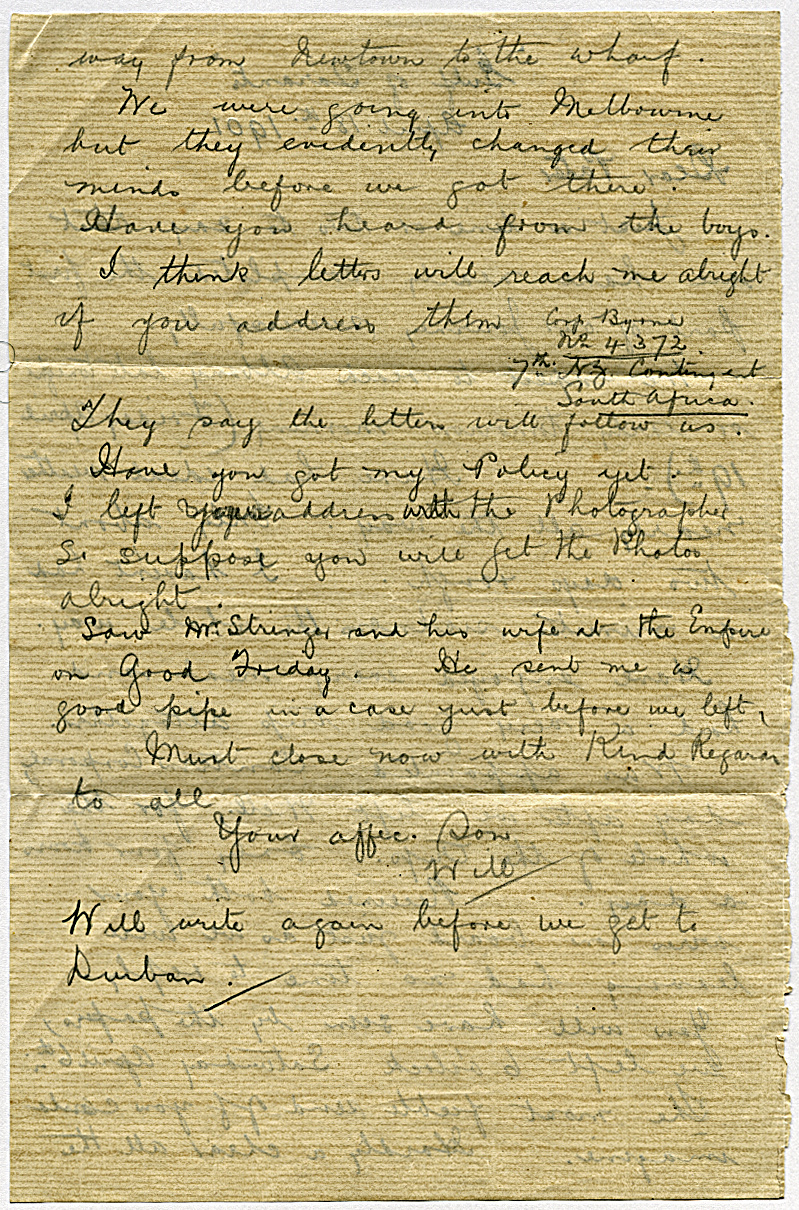 way from Newtown to the wharf.
We were going into Melbourne
but they evidently changed their
minds before we got there.
Have you heard from the boys.
I think letters will reach me alright
if you address them Corp Byrne
No 4372.
7th. NZ. Contingent
South Africa.
They say the letters will follow us.
Have you got my Policy yet.
I left your address with the Photographer
So suppose you will get the Photos
alright.
Saw Mr. Stringer and his wife at the Empire
on Good Friday. He sent me a
good pipe in a case just before we left,
Must close now with Kind Regards
to all
Your affec. Son
Will
Will write again before we get to
Durban.